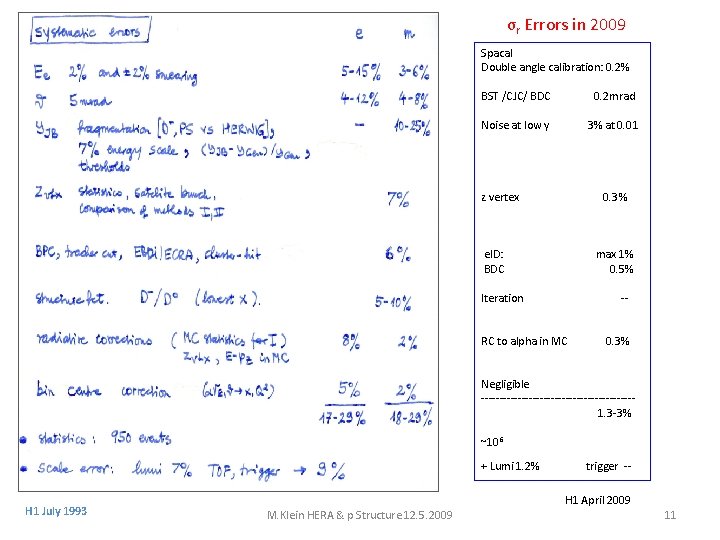 σr Errors in 2009
Systematic errors e m
Ee 2% and ±2% smearing 5-15% 3-6%
ϑ 5mrad 4-12% 4-8%
yJB fragmentation [D⁻, PS vs HERWIG], – 10-25%
7% energy scale, (yJB-yGen)/yGen,
thresholds
Zvtx statistics, satellite bunch, 7%
comparison of methods I, II
BPC, tracker cut, EBDI/ECRA, cluster-hit 6%
structure fct. D⁻/D⁰ (lowest x). 5-10%
radiative corrections (MC statistics for I) 8% 2%
Zvtx, E-Pz in MC
bin centre correction x, Q²) 5% 2%
17-29% 18-29%
• statistics: 950 events
• scale error: lumi 7% TOF, trigger → 9%
Spacal
Double angle calibration: 0.2%
BST /CJC/ BDC 0.2mrad
Noise at low y 3% at 0.01
z vertex 0.3%
eID: max 1%
BDC 0.5%
Iteration --
RC to alpha in MC 0.3%
Negligible
--------------------------------------
1.3-3%
~10⁶
+ Lumi 1.2% trigger --
H1 April 2009
H1 July 1993
M.Klein HERA & p Structure 12.5.2009
11